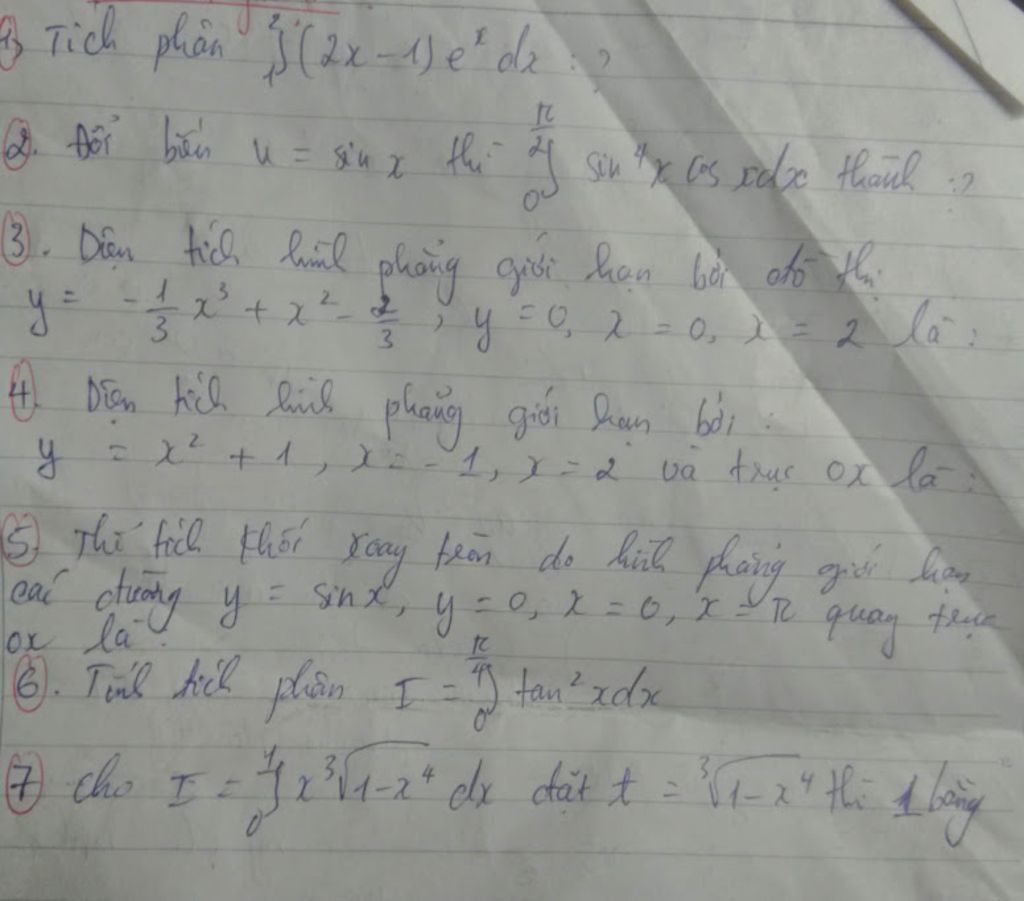 1) Tích phân ₁∫² (2x - 1) eˣ dx : ?
2. Đổi biến u = sin x thì ₀∫^(π/2) sin⁴x cos xdx thành :?
3. Diện tích hình phẳng giới hạn bởi đồ thị
y = -1/3 x³ + x² - 2/3 , y = 0, x = 0, x = 2 là :
4. Diện tích hình phẳng giới hạn bởi :
y = x² + 1, x = -1, x = 2 và trục ox là :
5) Thể tích khối xoay tròn do hình phẳng giới hạn
các đường y = sinx, y = 0, x = 0, x = π quay trục
ox là :
6. Tính tích phân I = ₀∫^(π/4) tan²xdx
7) cho I = ₀∫¹ x ³√(1-x⁴) dx đặt t = ³√(1-x⁴) thì I bằng